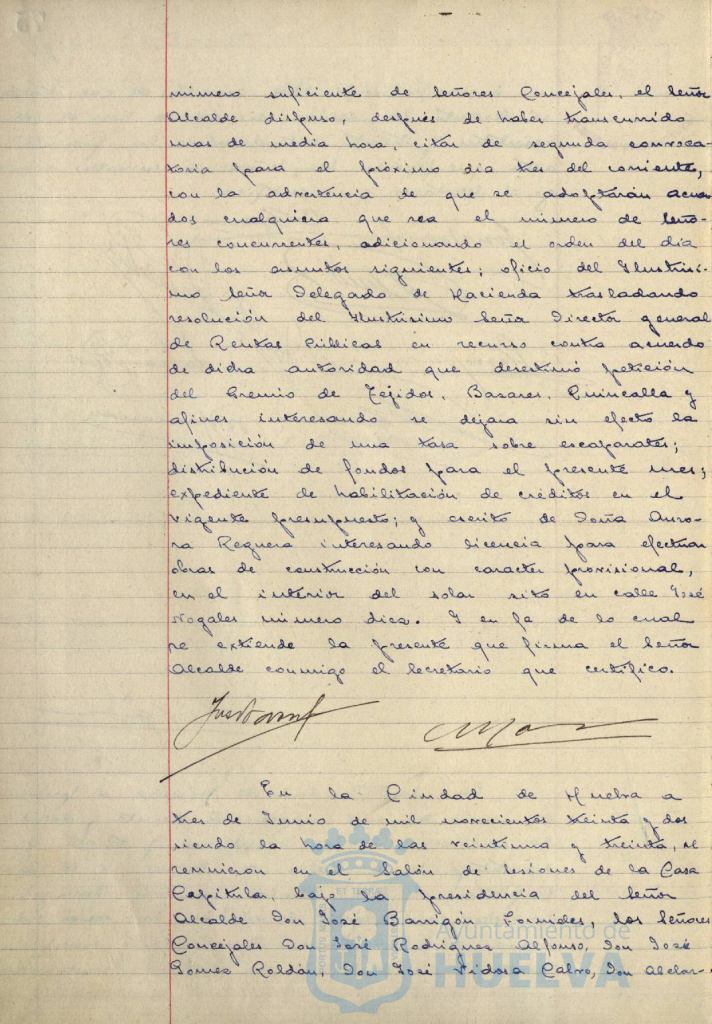 número suficiente de Señores Concejales, el Señor
Alcalde dispuso, después de haber transcurrido
mas de media hora, citar de segunda convoca-
toria para el próximo dia tres del corriente,
con la advertencia de que se adoptarán acuer-
dos cualquiera que sea el número de Seño-
res concurrentes, adicionando el orden del dia
con los asuntos siguientes; oficio del Ilustrísi-
mo Señor Delegado de Hacienda trasladando
resolución del Ilustrísimo Señor Director general
de Rentas Públicas en recurso contra acuerdo
de dicha autoridad que desestimó petición
del Gremio de Tejidos, Bazares, Quincalla y
afines interesando se dejara sin efecto la
imposición de una tasa sobre escaparates;
distribución de fondos para el presente mes;
expediente de habilitación de créditos en el
vigente presupuesto; y escrito de Doña Auro-
ra Reguera interesando licencia para efectuar
obras de construcción con caracter provisional,
en el interior del solar sito en calle José
Nogales número diez. Y en fe de lo cual
se extiende la presente que firma el Señor
Alcalde conmigo el Secretario que certifico.
En la Ciudad de Huelva a
tres de Junio de mil novecientos treinta y dos
siendo la hora de las veintiuna y treinta, se
reunieron en el Salón de Sesiones de la Casa
Capitular, bajo la presidencia del Señor
Alcalde Don José Barrigón Fornieles, los Señores
Concejales Don José Rodriguez Alfonso, Don José
Gomez Roldán, Don José Vidosa Calvo, Don
Ayuntamiento de
HUELVA